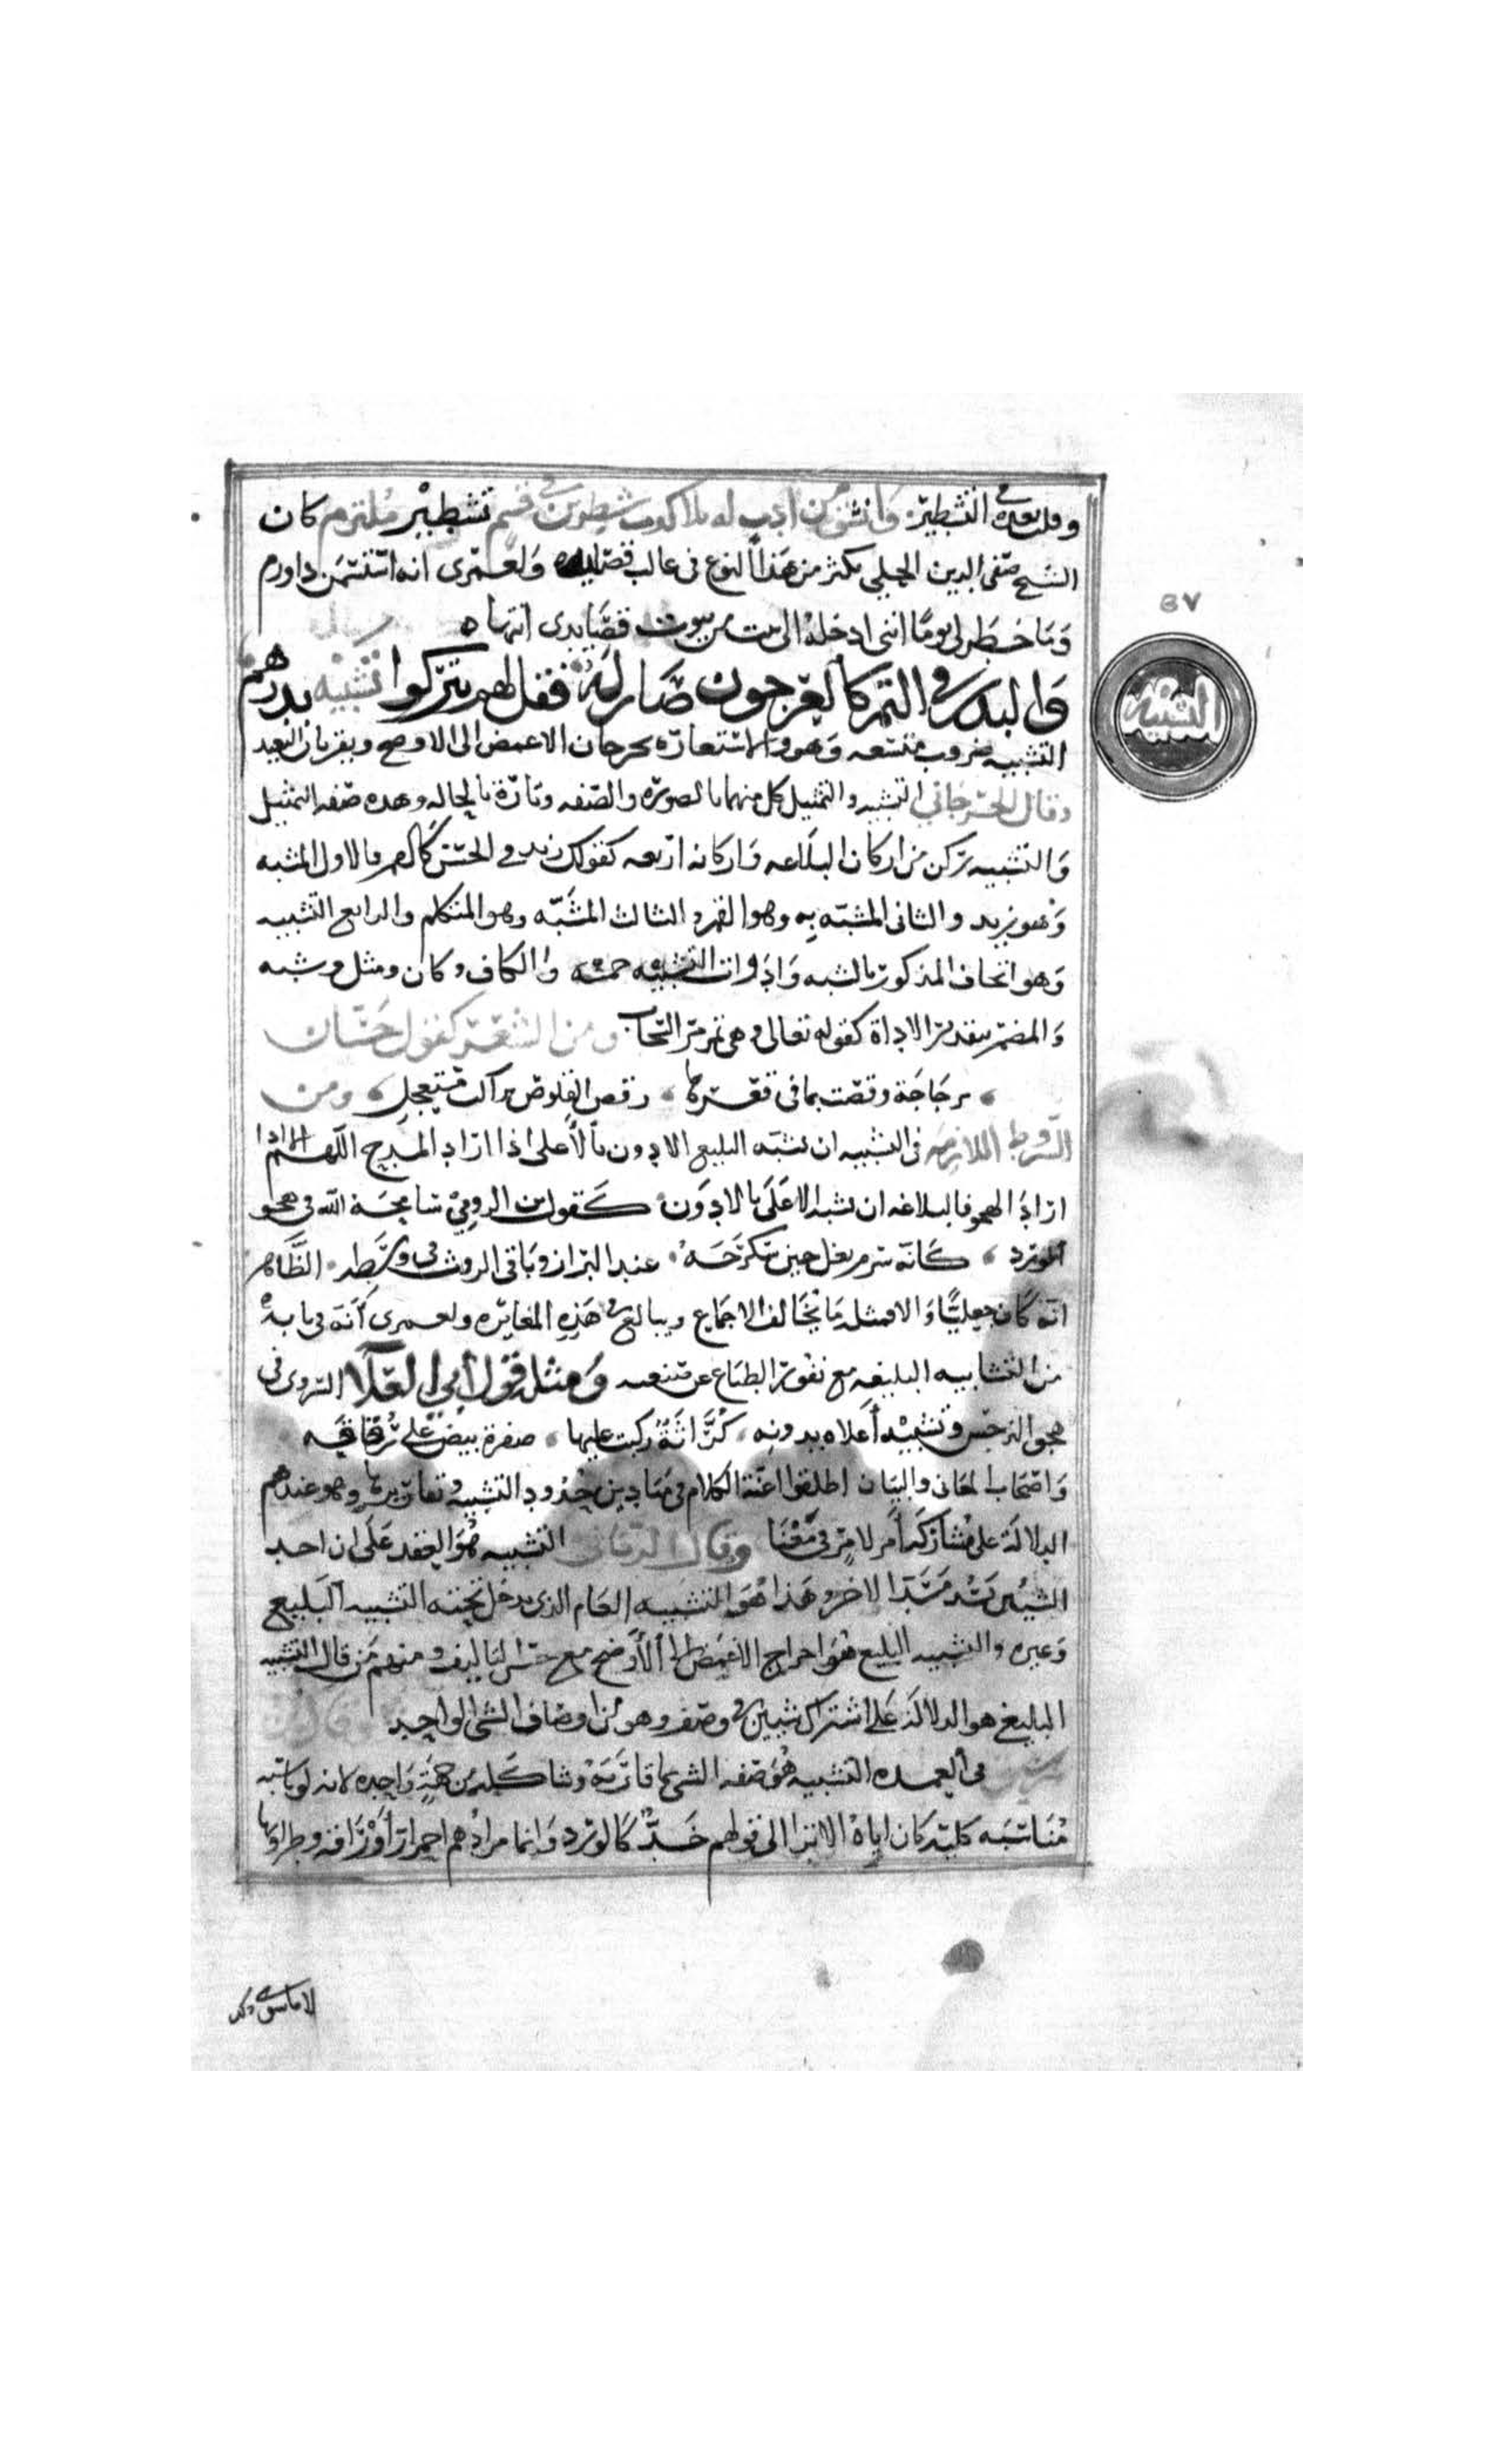 وقلت بعده في التشطير وانشق من ادب له بلا كدب شطرين في قسم تشطير ملتزم كان
الشيخ صفي الدين الحلي يكثر من هذا النوع في غالب قصايده ولعمري انه استسمن ذا ورم
وما خطر لي يوما انني ادخله الى بيت من بيوت قصايدي انتها ه
والبدر في التم كالعرجون صار له فقل لهم يتركوا تشبيه بدرهم
التشبيه
٥٧
التشبيه ضروب متسعه وهو والاستعاره يخرجان الاغمض الى الاوضح ويقربان البعيد
وقال الجرجاني التشبيه والتمثيل كل منهما بالصوره والصفه وتارة بالحاله وهده صفه التمثيل
والتشبيه ركن من اركان البلاغه واركانه اربعه كقولك زيد في الحسن كالقمر فالاول المشبه
وهو زيد والثاني المشبه به وهو القمر و الثالث المشبه وهو المتكلم والرابع التشبيه
وهو المذكور بالشبه وادوات التشبيه خمسه والكاف وكان ومثل وشبه
والمصدر بتقدير الاداة كقوله تعالى وهي تمر مر السحاب ومن الشعر كقول حسان
بزجاجة رقصت بما في قعرها رقص القلوص براكب مستعجل ومن
الشروط اللازمه في التشبيه ان يشبه البليغ الادون بالأعلى اذا اراد المدح اللهم الا اذا
اراد الهجو فالبلاغه ان يشبه الاعلى بالادون كقول ابن الرومي سامحه الله في هجو
الورد كانه سرم بغل حين سكرجه عند البراز وباقي الروث في وسطه الظاهر
انه كان جعليا والا فمثله ما يخالف الاجماع ويبالغ في هذه المغايره ولعمري انه في بابه
من التشابيه البليغه مع نفور الطباع عن متنعمه ومثله قول ابي العلا السروي في
هجو النرجس وتشبيه أعلاه بدونه كراثة ركبت عليها صفرة بيض على رقاقه
واصحاب المعاني والبيان اطلقوا اعنة الكلام في ميادين حدود التشبيه وتعاريرها وهو عندهم
الدلالة على مشاركة أمر لامر في معنا وقال الرماني التشبيه هو العقد على ان احد
الشيئين يسد مسد الاخر و هذا هو التشبيه العام الذي يدخل تحته التشبيه البليغ
وغيره والتشبيه البليغ هو اخراج الاغمض الى الأوضح مع حسن التاليف ومنهم من قال التشبيه
البليغ هو الدلالة على اشتراك شيئين في وصف وهو من اوصاف الشي الواحد وقال ابن
رشيق في العمده التشبيه هو صفه الشي بما قاربه وشاكله من جهة واحده لانه لو ناسبه
مناسبه كليه كان اياه الا ترا الى قولهم خد كالورد وانما مرادهم احمرار أوراقه وطراوتها
لا ما سوى ذلك